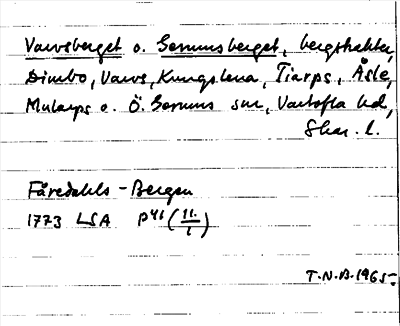 Varvsberget o. Gerumsberget, bergstrakter,
Dimbo, Varvs, Kungslena, Tiarps, Åsle,
Mularps o. Ö. Gerums snr, Vartofta hd,
Skar. l.
Fåredahls-Bergen
1773 LSA P41 (11/1)
T.N.B. 1965.